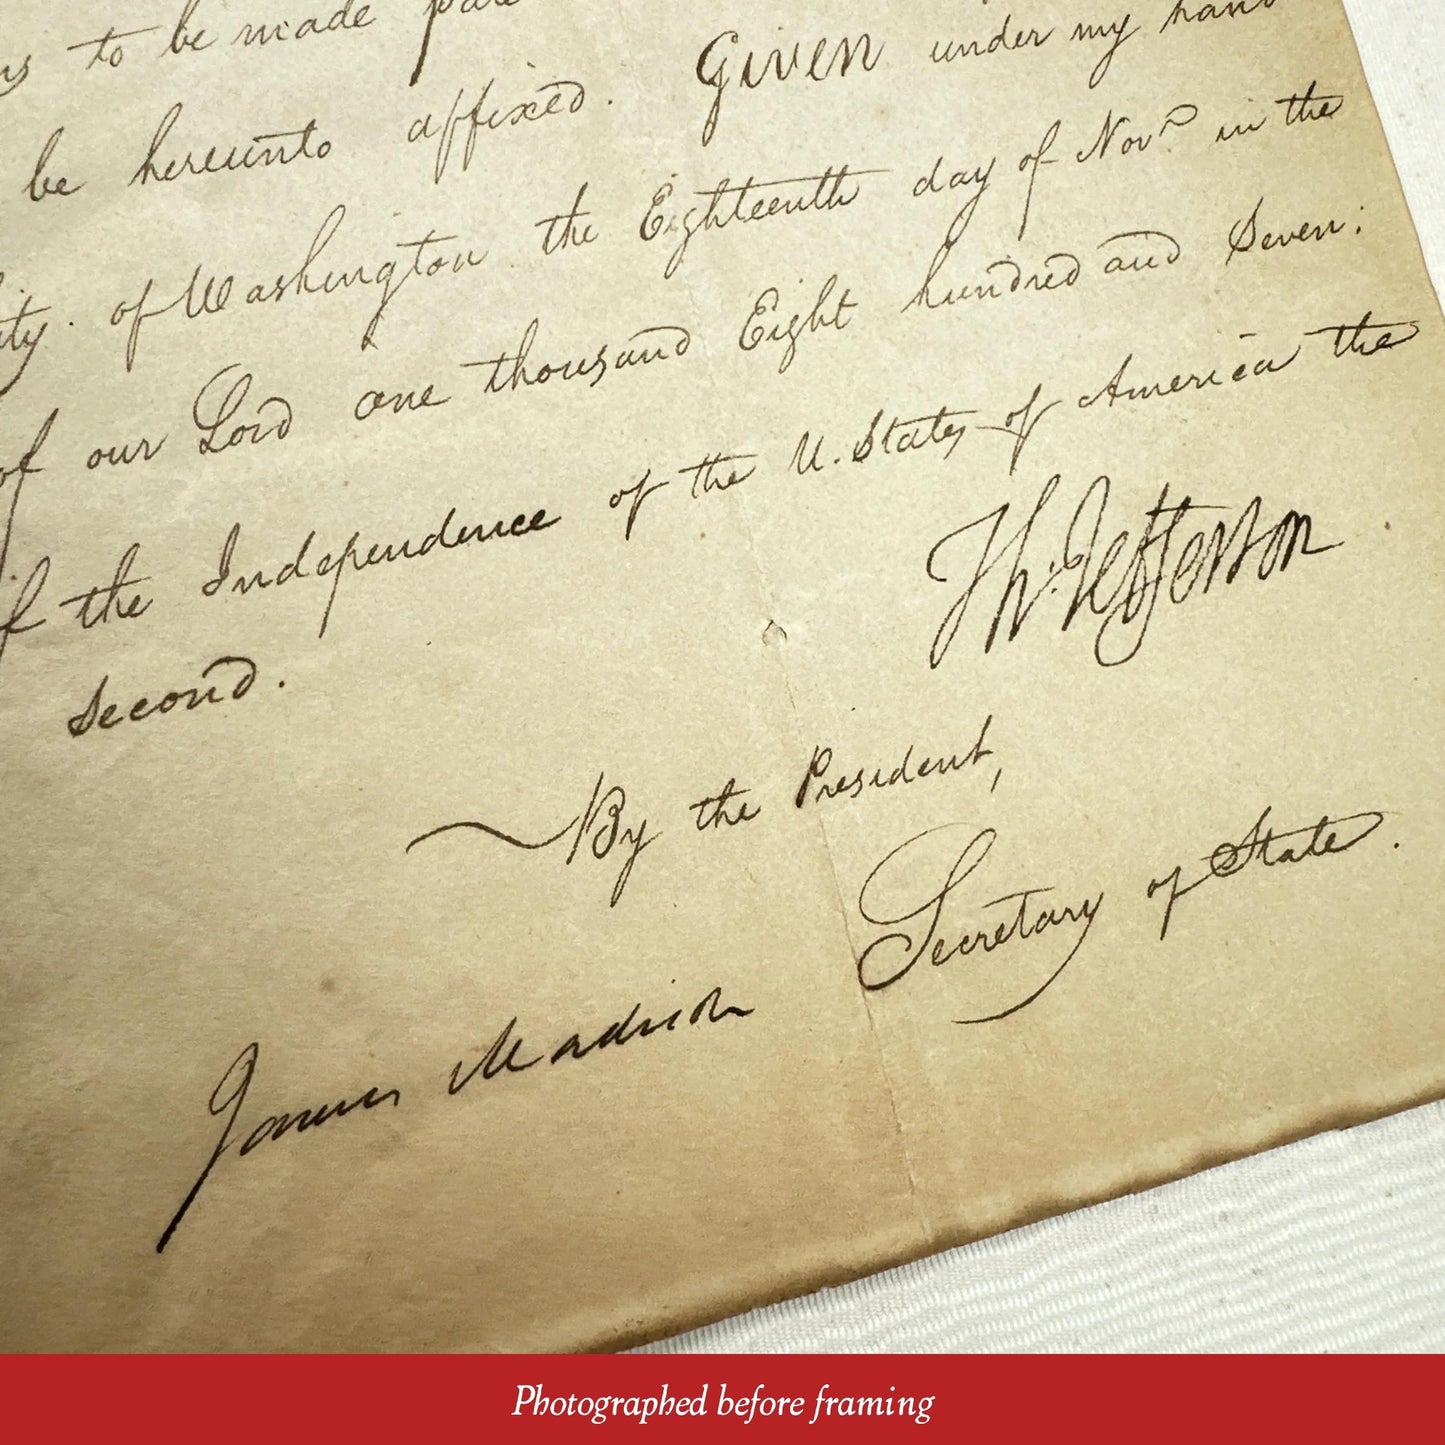 to be made
be hereunto affixed. Given under my hand
of Washington the Eighteenth day of Novr. in the
of our Lord one thousand Eight hundred and Seven:
the Independence of the U. States of America the
second.
Th. Jefferson
By the President,
James Madison Secretary of State.
Photographed before framing